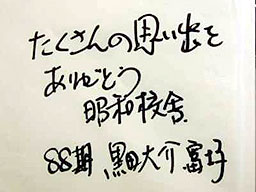 たくさんの思い出を
ありがとう
昭和校舎
88期 黒田大介